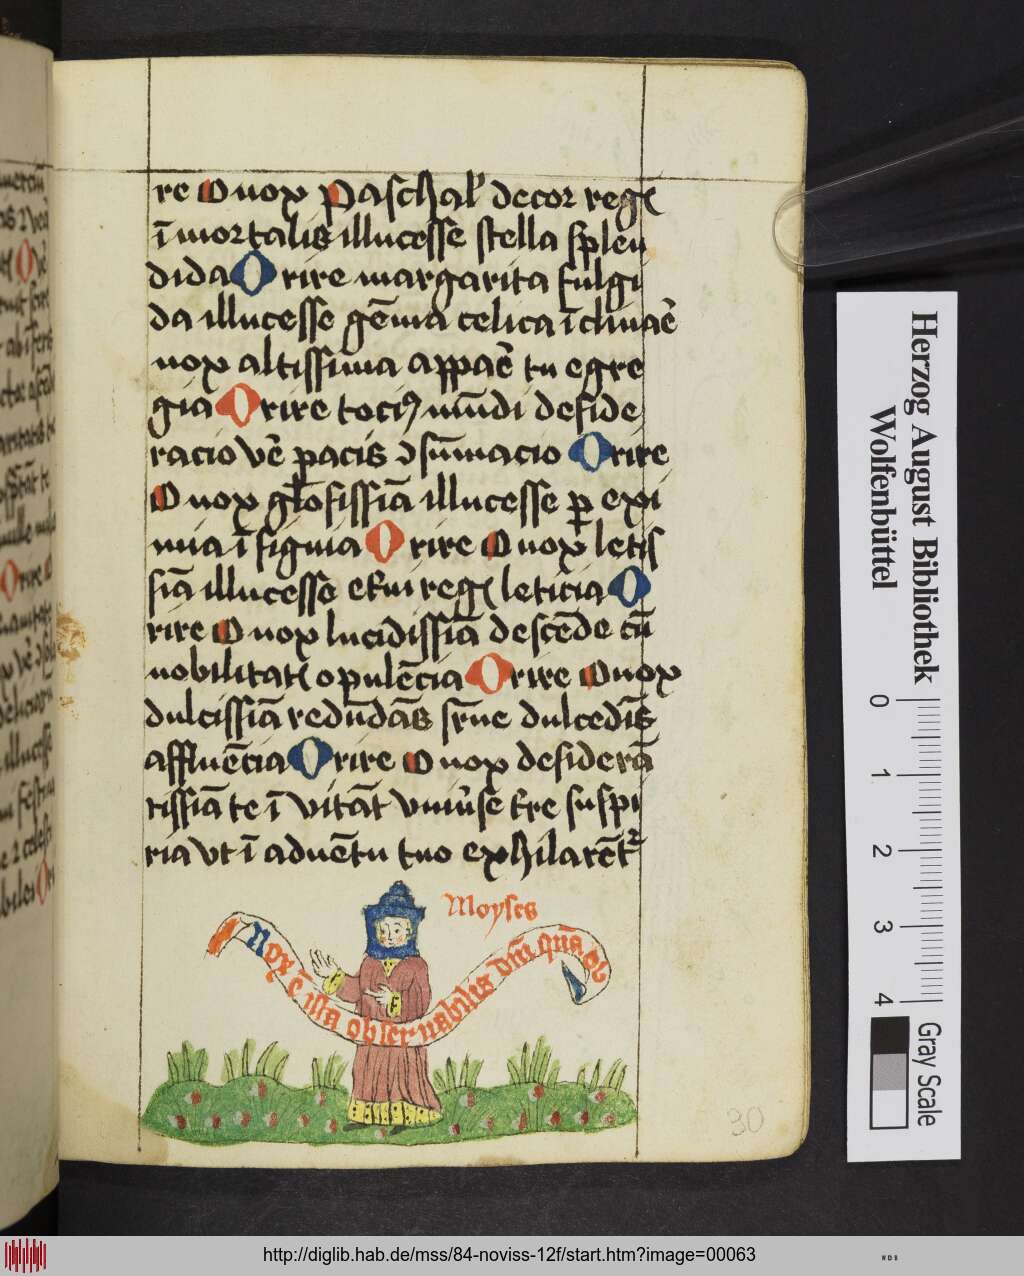 re O nox Pascħal' decor regꝭ
ī mortalis illucesse stella splen
dida Orire margarita fulgi
da illucesse gēma celica ī clinaē
nox altissima appaē tu egre
gia Orire tociꝰ mūdi deside
racio vē pacis ꝯsūmacio Orire
O nox gl̄osissīa illucesse ꝑ exi
mia īsignia Orire O nox letis
sīa illucesse et̄ni regꝭ leticia O
rire O nox lucidissīa descēde cū
nobilitatꝭ opulēcia Orire O nox
dulcissīa redūdās sr̄ne dulcedīs
affluēcia Orire O nox desiderā
tissīa te ī vitāt vniūse t̄re suspi
ria vt ī aduētu tuo exhilarēt᷑
Moyses
Nox ē ista obseruabilis dn̄i qn̄
30
Herzog August Bibliothek
Wolfenbüttel
0 1 2 3 4
Gray Scale
http://diglib.hab.de/mss/84-noviss-12f/start.htm?image=00063